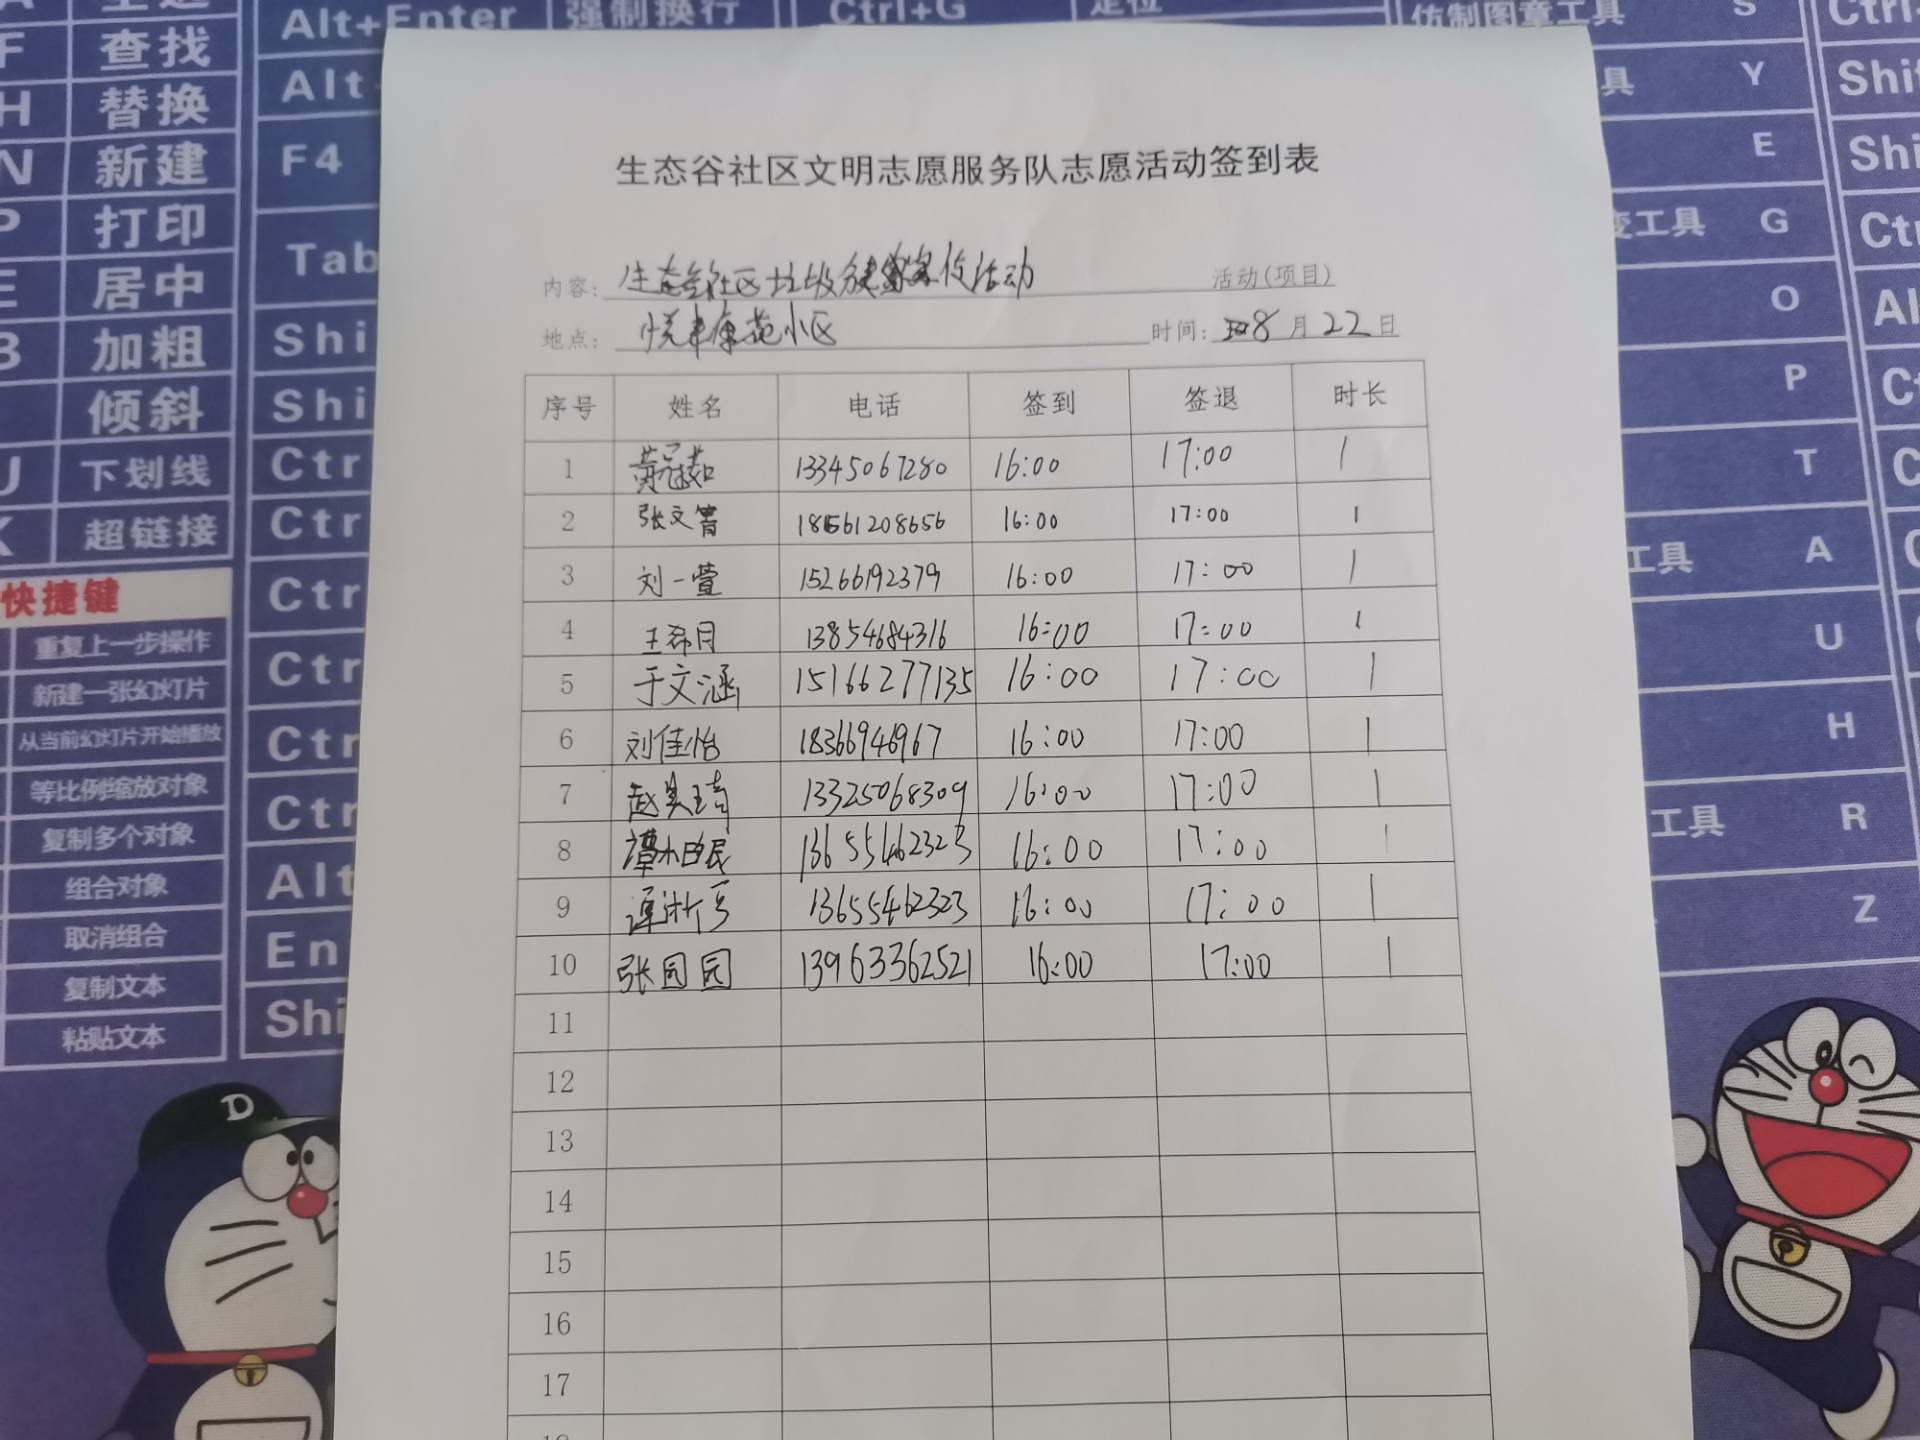 Alt+Enter 强制换行 Ctrl+G 定位 仿制图章工具 S Ctrl
F 查找 Alt 具 Y Shi
H 替换
N 新建 F4 E Shi
P 打印 变工具 G Ctr
E 居中 Tab O Al
B 加粗 Shi P
倾斜 Shi T
U 下划线 Ctr
K 超链接 Ctr 工具 A
快捷键 Ctr U
重复上一步操作
新建一张幻灯片 Ctr H
从当前幻灯片开始播放 Ctr
等比例缩放对象 Ctr 工具 R
复制多个对象
组合对象 Alt Z
取消组合 En
复制文本
粘贴文本 Shi
D
生态谷社区文明志愿服务队志愿活动签到表
内容: 生态谷社区垃圾 宣传活动 活动(项目)
地点: 康苑小区 时间: 8月22日
序号 姓名 电话 签到 签退 时长
1 黄冠茹 13345067280 16:00 17:00 1
2 张文 18561208656 16:00 17:00 1
3 刘一萱 15266192379 16:00 17:00 1
4 王 月 13854684316 16:00 17:00 1
5 于文涵 15166277135 16:00 17:00 1
6 刘佳怡 18366946967 16:00 17:00 1
7 赵昊琦 13325068309 16:00 17:00 1
8 13655462323 16:00 17:00 1
9 13655462323 16:00 17:00 1
10 张园园 13963362521 16:00 17:00 1
11
12
13
14
15
16
17